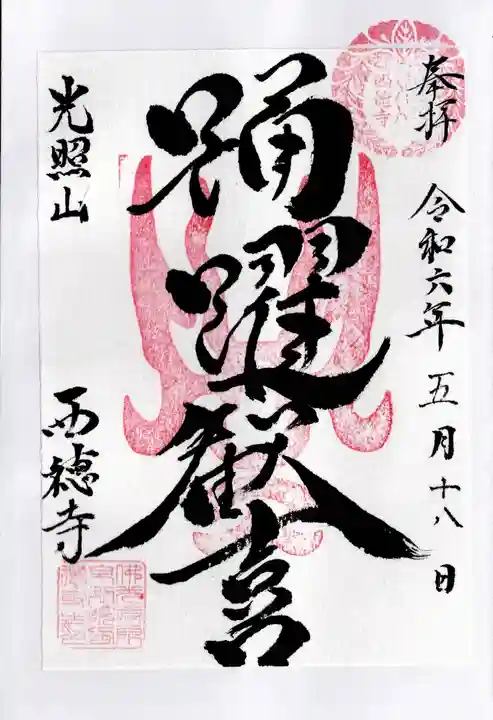 奉拝
令和六年五月十八日
踊躍歓喜
光照山
西徳寺